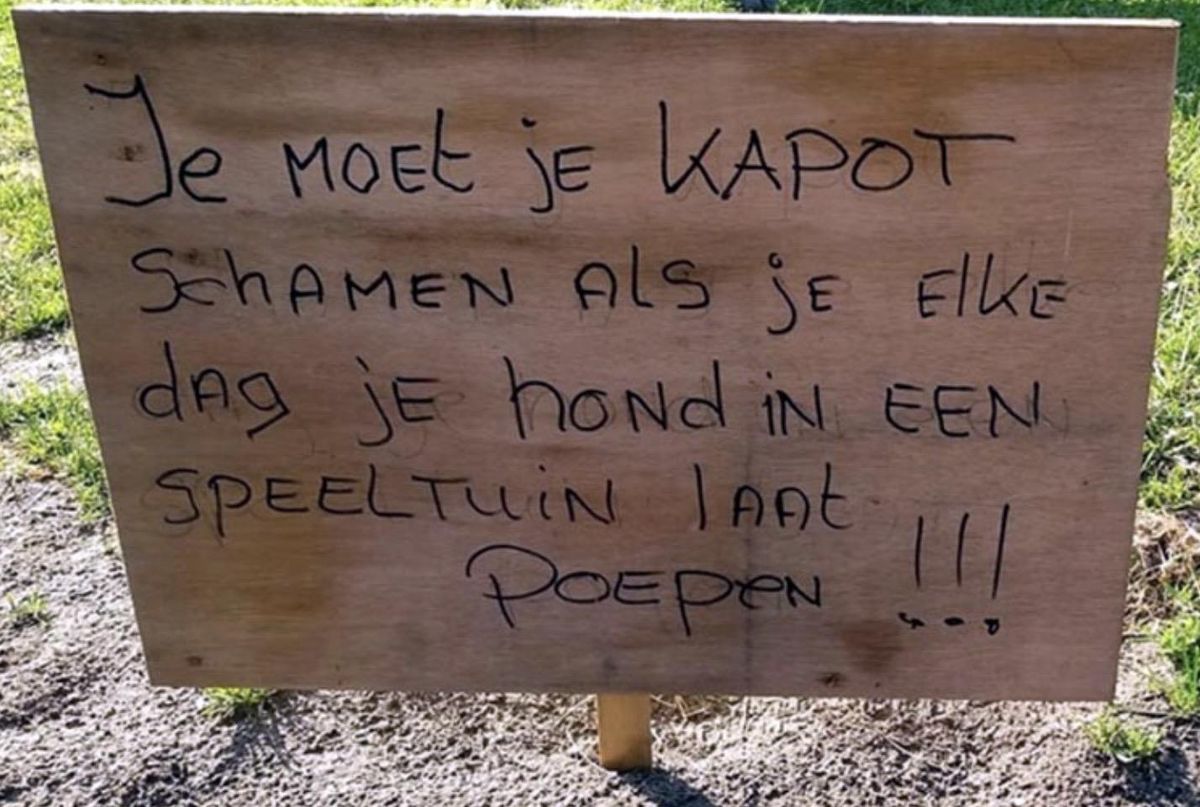 Je MOET jE KAPOT
SchAMEN AlS jE ElKE
dAg jE hoNd iN EEN
SPEELTUiN lAAt
POEPEN !!!